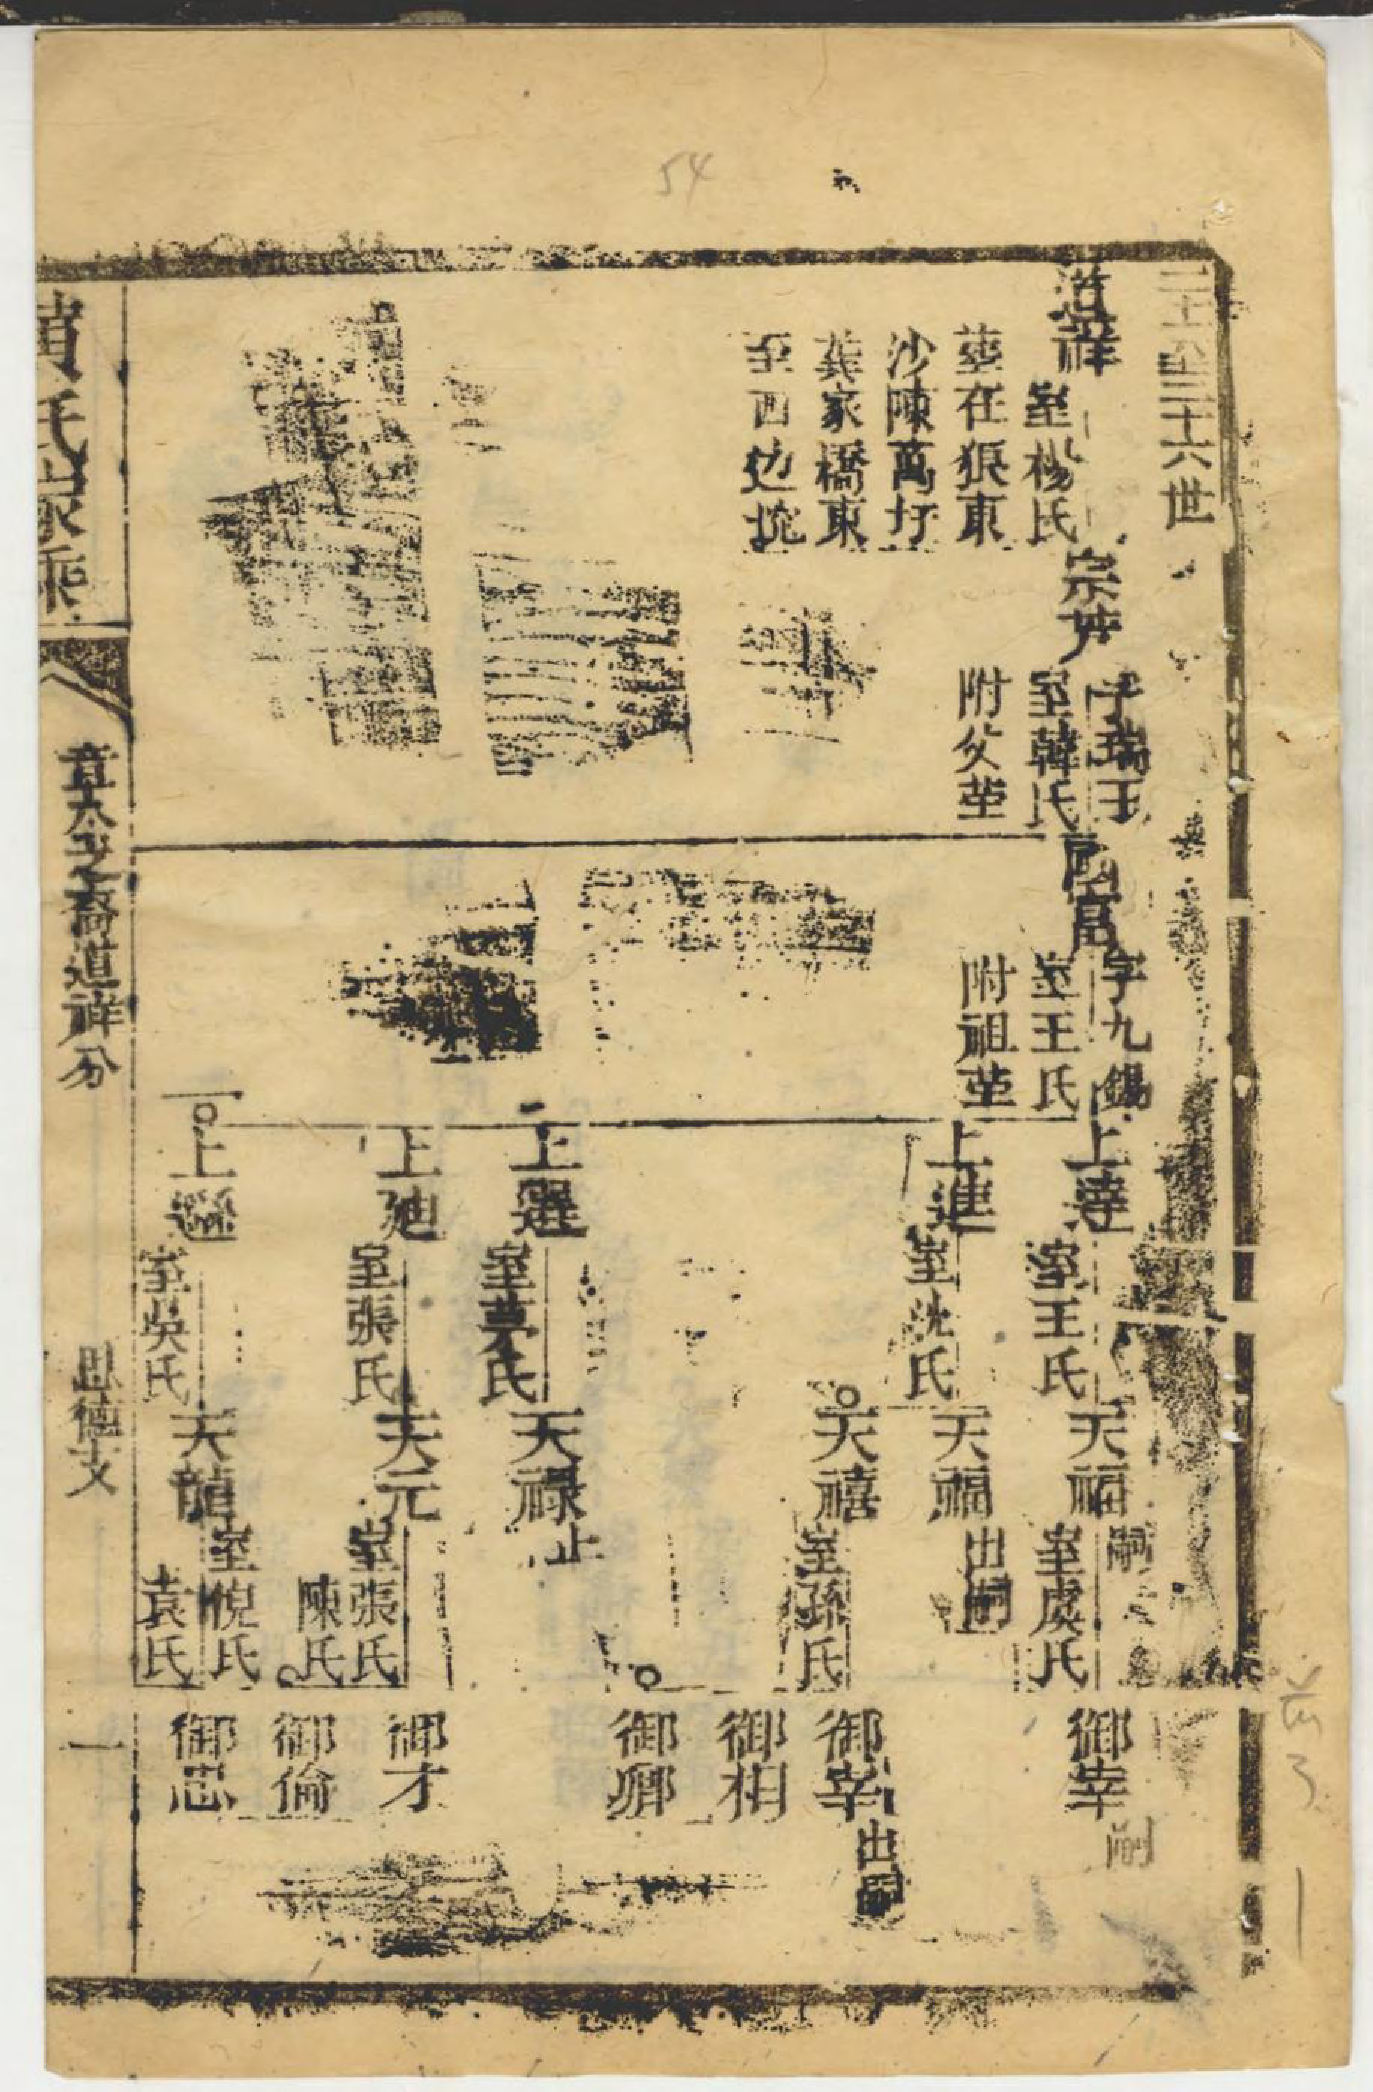 54
三十六世
道祥
室楊氏
葬在狼東
沙陳萬圩
龔家橋東
至西边坨
字瑞玉
室韓氏
附父塋
國富
字九錫
室王氏
附祖塋
上達
室王氏
上進
室沈氏
上選
室
氏
上廸
室張氏
上遜
室吳氏
天福
嗣
室
氏
天福
出嗣
天禧
室孫氏
天祿
止
天元
室張氏
陳氏
天龍
室倪氏
袁氏
御宰
嗣
御宰
出嗣
御相
御卿
御才
御倫
御忠
氏家乘
章公之裔道祥分
思德文
一